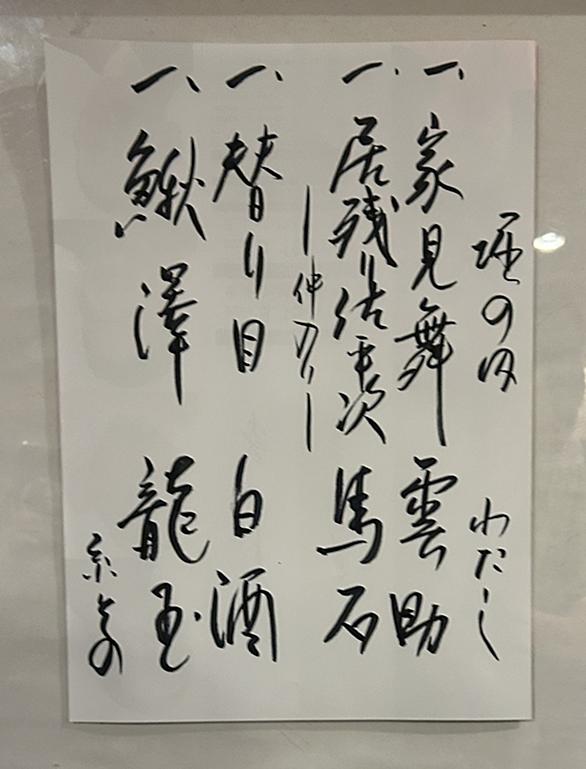 堀の内 わたし
一、家見舞 雲助
一、居残り佐平次 馬石
ー仲入りー
一、替り目 白酒
一、鰍澤 龍玉